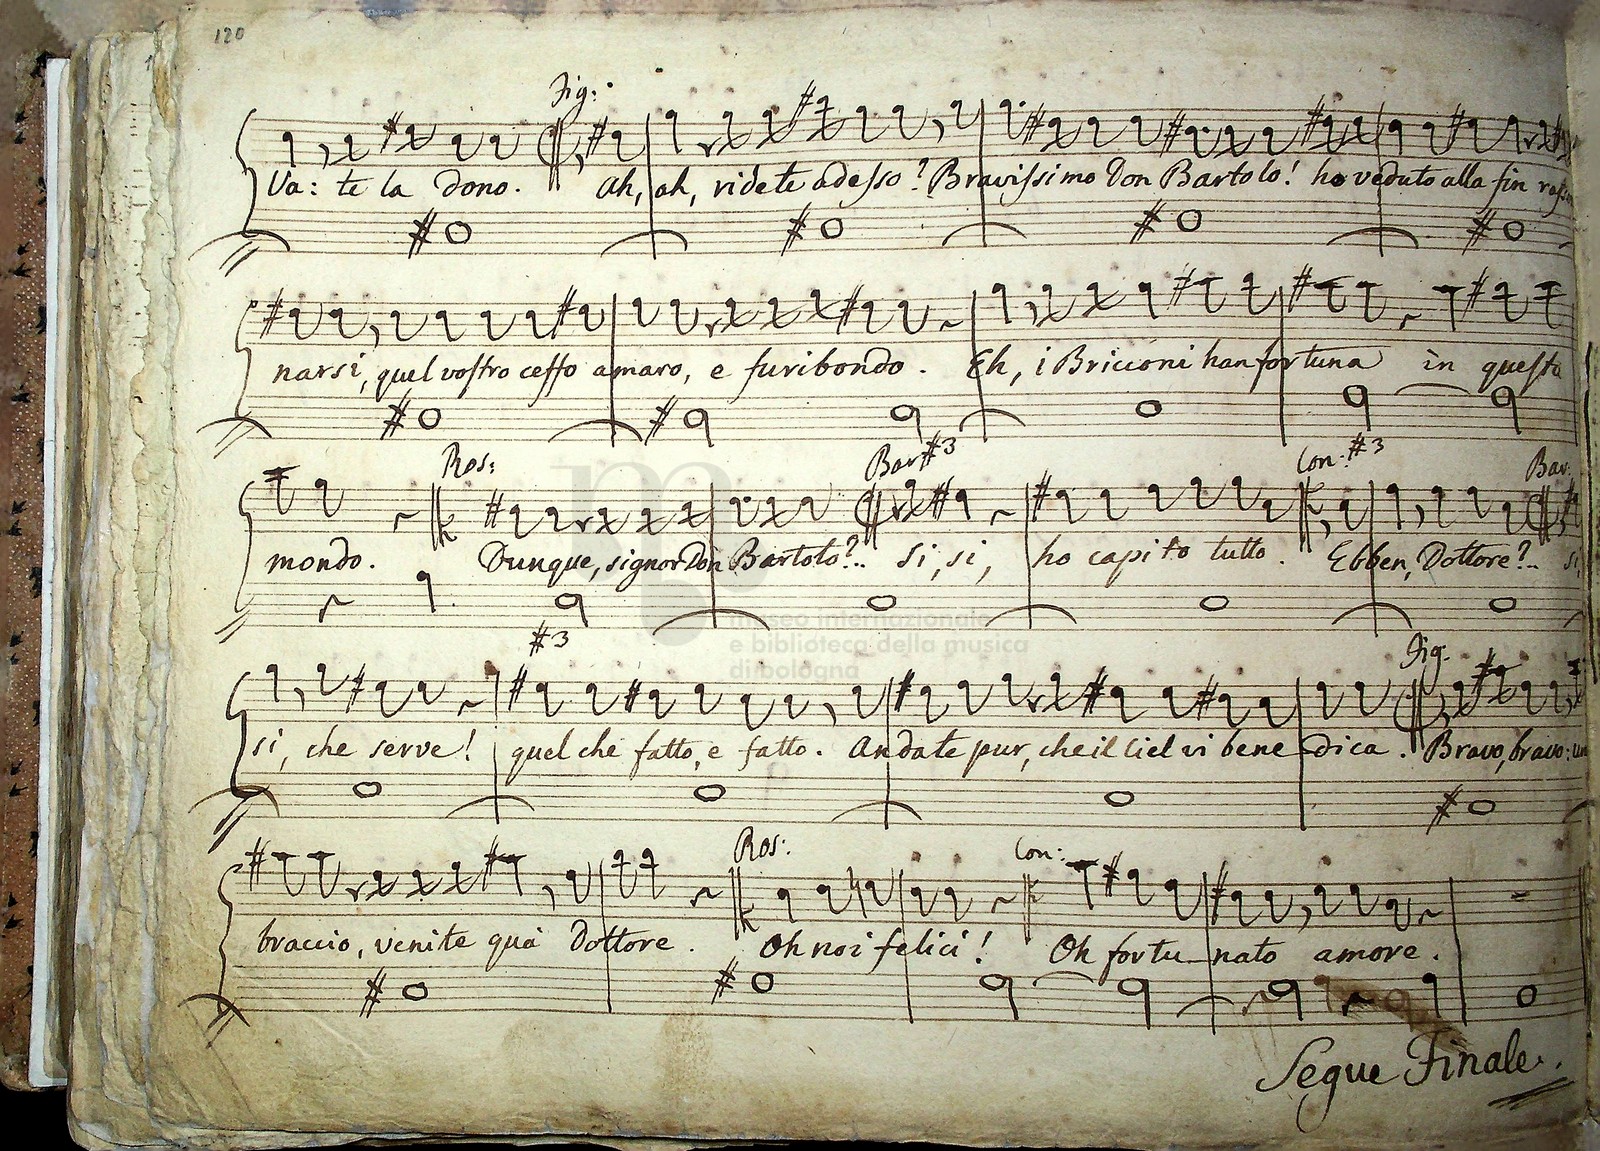 120
Fig:
Va: te la dono. Ah, ah, ridete adesso? Bravissimo Don Bartolo! ho veduto alla fin
narsi, quel vostro ceffo amaro, e furibondo. Eh, i Bricconi han fortuna in questo
Ros: Bar #3 Con: #3 Bar:
mondo. Dunque, signor Don Bartolo?.. Si, si, ho capito tutto. Ebben, Dottore?.. Si,
#3
museo internazionale
e biblioteca della musica
di bologna
Fig.
si, che serve! quel che fatto, e fatto. Andate pur, che il Ciel vi benedica. Bravo, bravo: un
Ros: Con:
braccio, venite quà Dottore. Oh noi felici! Oh fortunato amore.
Segue Finale.